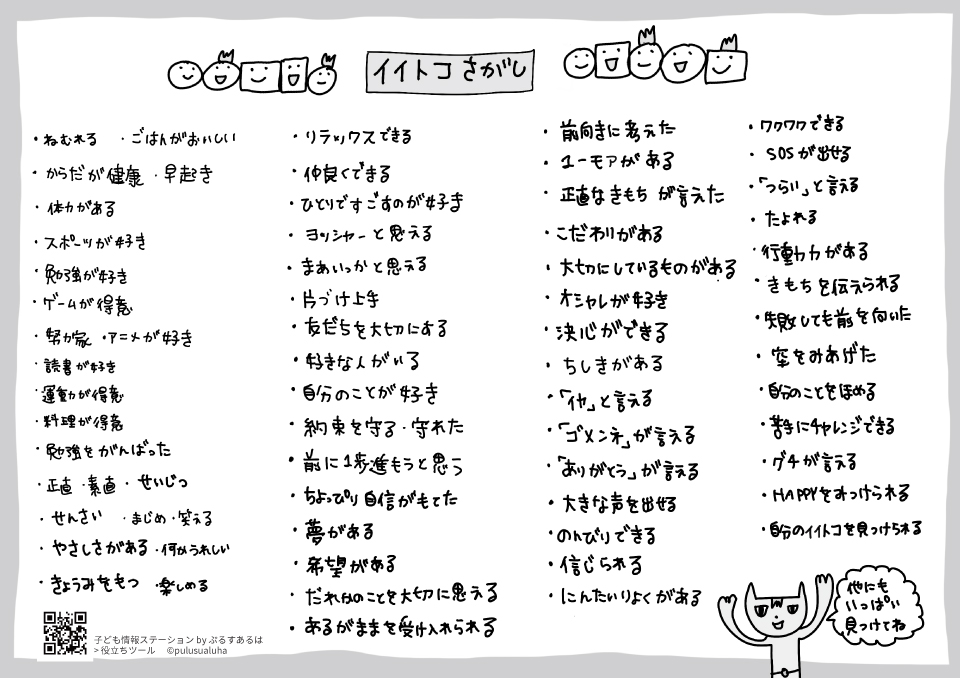 イイトコさがし
・ねむれる ・ごはんがおいしい
・からだが健康 ・早起き
・体力がある
・スポーツが好き
・勉強が好き
・ゲームが得意
・努力家 ・アニメが好き
・読書が好き
・運動が得意
・料理が得意
・勉強をがんばった
・正直・素直・せいじつ
・せんさい ・まじめ・笑える
・やさしさがある・何かうれしい
・きょうみをもつ ・楽しめる
・リラックスできる
・仲良くできる
・ひとりですごすのが好き
・ヨッシャーと思える
・まあいっかと思える
・片づけ上手
・友だちを大切にする
・好きな人がいる
・自分のことが好き
・約束を守る・守れた
・前に1歩進もうと思う
・ちょっぴり自信がもてた
・夢がある
・希望がある
・だれかのことを大切に思える
・あるがままを受け入れられる
・前向きに考えた
・ユーモアがある
・正直なきもちが言えた
・こだわりがある
・大切にしているものがある
・オシャレが好き
・決心ができる
・ちしきがある
・「イヤ」と言える
・「ゴメンネ」が言える
・「ありがとう」が言える
・大きな声を出せる
・のんびりできる
・信じられる
・にんたいりょくがある
・ワクワクできる
・SOSが出せる
・「つらい」と言える
・たよれる
・行動力がある
・きもちを伝えられる
・失敗しても前を向いた
・空をみあげた
・自分のことをほめる
・苦手にチャレンジできる
・グチが言える
・HAPPYをみつけられる
・自分のイイトコを見つけられる
他にも
いっぱい
見つけてね
子ども情報ステーション by ぷるすあるは
> 役立ちツール ©pulusualuha